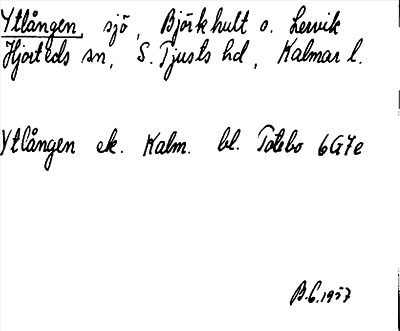 Ytlången, sjö, Björkhult o. Lervik
Hjorteds sn, S. Tjusts hd, Kalmar l.
Ytlången ek. Kalm. bl. Totebo 6G7e
B.G. 1957